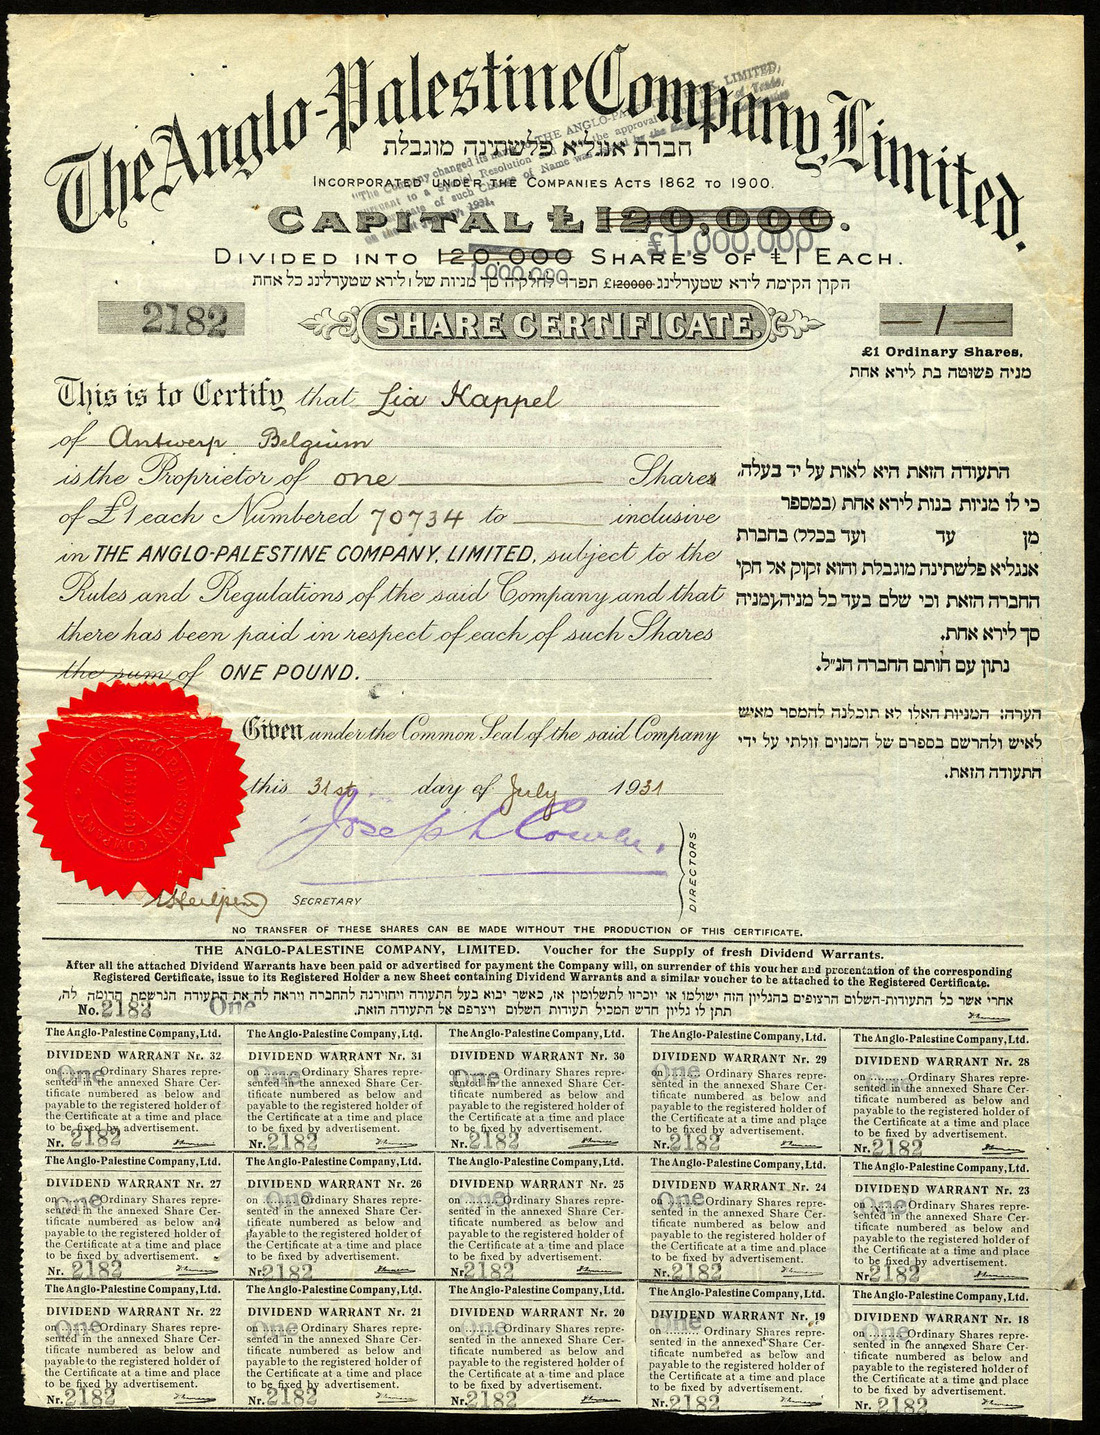 The Anglo-Palestine Company, Limited.
חברת אנגליא פלשתינה מוגבלת
"The Company changed its name to THE ANGLO-PALESTINE BANK, LIMITED,
pursuant to a Special Resolution the approval of the Board of Trade,
of such Change of Name was issued by the
INCORPORATED UNDER THE COMPANIES ACTS 1862 TO 1900.
CAPITAL £120,000.
£1,000,000
DIVIDED INTO 120,000 SHARES OF £1 EACH.
1,000,000
הקרן הקימת לירא שטערלינג £120000 תפרד לחלקיה סך מניות של 1 לירא שטערלינג כל אחת
2182
SHARE CERTIFICATE.
— 1 —
£1 Ordinary Shares.
מניה פשוטה בת לירא אחת
This is to Certify that Lia Kappel
of Antwerp Belgium
is the Proprietor of one Shares
of £1 each Numbered 70734 to inclusive
in THE ANGLO-PALESTINE COMPANY, LIMITED, subject to the
Rules and Regulations of the said Company and that
there has been paid in respect of each of such Shares
the sum of ONE POUND.
התעודה הזאת היא לאות על יד בעלה,
כי לו מניות בנות לירא אחת (במספר
מן עד ועד בכלל) בחברת
אנגליא פלשתינה מוגבלת והוא זקוק אל חקי
החברה הזאת וכי שלם בעד כל מניה ומניה
סך לירא אחת.
נתון עם חותם החברה הנ"ל.
הערה: המניות האלו לא תוכלנה להמסר מאיש
לאיש ולהרשם בספרם של המנוים זולתי על ידי
התעודה הזאת.
Given under the Common Seal of the said Company
this 31st day of July 1931
Joseph Cowen.
DIRECTORS
SECRETARY
NO TRANSFER OF THESE SHARES CAN BE MADE WITHOUT THE PRODUCTION OF THIS CERTIFICATE.
THE ANGLO-PALESTINE COMPANY, LIMITED. Voucher for the Supply of fresh Dividend Warrants.
After all the attached Dividend Warrants have been paid or advertised for payment the Company will, on surrender of this voucher and presentation of the corresponding
Registered Certificate, issue to its Registered Holder a new Sheet containing Dividend Warrants and a similar voucher to be attached to the Registered Certificate.
אחרי אשר כל התעודות-השלום הרצופים בהגליון הזה ישולמו או יוכרזו לתשלומין אז, כאשר יבוא בעל התעודה ויחזירנה להחברה ויראה לה את התעודה הנרשמת הדומה לה,
תתן לו גליון חדש המכיל תעודות השלום ויצרפם אל התעודה הזאת.
No. 2182 One
The Anglo-Palestine Company, Ltd.
DIVIDEND WARRANT Nr. 32
on One Ordinary Shares repre-
sented in the annexed Share Cer-
tificate numbered as below and
payable to the registered holder of
the Certificate at a time and place
to be fixed by advertisement.
Nr. 2182
The Anglo-Palestine Company, Ltd.
DIVIDEND WARRANT Nr. 31
on One Ordinary Shares repre-
sented in the annexed Share Cer-
tificate numbered as below and
payable to the registered holder of
the Certificate at a time and place
to be fixed by advertisement.
Nr. 2182
The Anglo-Palestine Company, Ltd.
DIVIDEND WARRANT Nr. 30
on One Ordinary Shares repre-
sented in the annexed Share Cer-
tificate numbered as below and
payable to the registered holder of
the Certificate at a time and place
to be fixed by advertisement.
Nr. 2182
The Anglo-Palestine Company, Ltd.
DIVIDEND WARRANT Nr. 29
on One Ordinary Shares repre-
sented in the annexed Share Cer-
tificate numbered as below and
payable to the registered holder of
the Certificate at a time and place
to be fixed by advertisement.
Nr. 2182
The Anglo-Palestine Company, Ltd.
DIVIDEND WARRANT Nr. 28
on One Ordinary Shares repre-
sented in the annexed Share Cer-
tificate numbered as below and
payable to the registered holder of
the Certificate at a time and place
to be fixed by advertisement.
Nr. 2182
The Anglo-Palestine Company, Ltd.
DIVIDEND WARRANT Nr. 27
on One Ordinary Shares repre-
sented in the annexed Share Cer-
tificate numbered as below and
payable to the registered holder of
the Certificate at a time and place
to be fixed by advertisement.
Nr. 2182
The Anglo-Palestine Company, Ltd.
DIVIDEND WARRANT Nr. 26
on One Ordinary Shares repre-
sented in the annexed Share Cer-
tificate numbered as below and
payable to the registered holder of
the Certificate at a time and place
to be fixed by advertisement.
Nr. 2182
The Anglo-Palestine Company, Ltd.
DIVIDEND WARRANT Nr. 25
on One Ordinary Shares repre-
sented in the annexed Share Cer-
tificate numbered as below and
payable to the registered holder of
the Certificate at a time and place
to be fixed by advertisement.
Nr. 2182
The Anglo-Palestine Company, Ltd.
DIVIDEND WARRANT Nr. 24
on One Ordinary Shares repre-
sented in the annexed Share Cer-
tificate numbered as below and
payable to the registered holder of
the Certificate at a time and place
to be fixed by advertisement.
Nr. 2182
The Anglo-Palestine Company, Ltd.
DIVIDEND WARRANT Nr. 23
on One Ordinary Shares repre-
sented in the annexed Share Cer-
tificate numbered as below and
payable to the registered holder of
the Certificate at a time and place
to be fixed by advertisement.
Nr. 2182
The Anglo-Palestine Company, Ltd.
DIVIDEND WARRANT Nr. 22
on One Ordinary Shares repre-
sented in the annexed Share Cer-
tificate numbered as below and
payable to the registered holder of
the Certificate at a time and place
to be fixed by advertisement.
Nr. 2182
The Anglo-Palestine Company, Ltd.
DIVIDEND WARRANT Nr. 21
on One Ordinary Shares repre-
sented in the annexed Share Cer-
tificate numbered as below and
payable to the registered holder of
the Certificate at a time and place
to be fixed by advertisement.
Nr. 2182
The Anglo-Palestine Company, Ltd.
DIVIDEND WARRANT Nr. 20
on One Ordinary Shares repre-
sented in the annexed Share Cer-
tificate numbered as below and
payable to the registered holder of
the Certificate at a time and place
to be fixed by advertisement.
Nr. 2182
The Anglo-Palestine Company, Ltd.
DIVIDEND WARRANT Nr. 19
on One Ordinary Shares repre-
sented in the annexed Share Cer-
tificate numbered as below and
payable to the registered holder of
the Certificate at a time and place
to be fixed by advertisement.
Nr. 2182
The Anglo-Palestine Company, Ltd.
DIVIDEND WARRANT Nr. 18
on One Ordinary Shares repre-
sented in the annexed Share Cer-
tificate numbered as below and
payable to the registered holder of
the Certificate at a time and place
to be fixed by advertisement.
Nr. 2182